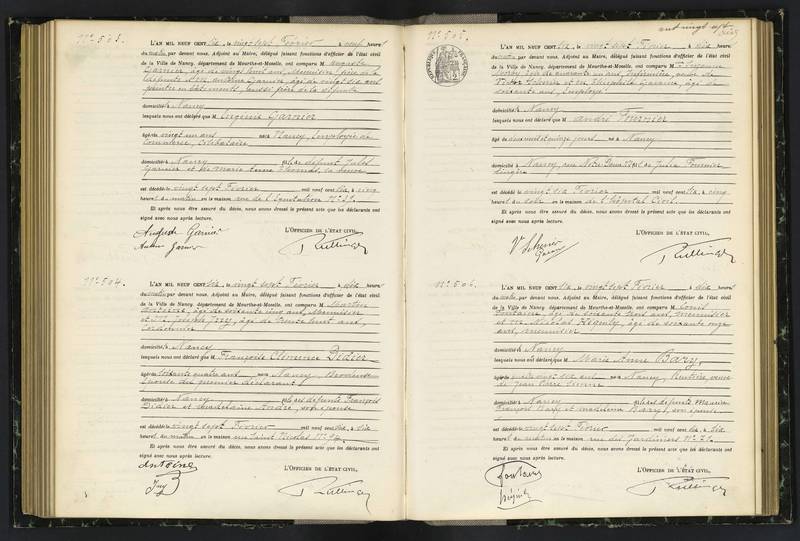 N° 503.
L'AN MIL NEUF CENT dix, le vingt sept Février à heures
du matin, par devant nous, Adjoint au Maire, délégué faisant fonctions d'officier de l'état civil
de la Ville de Nancy, département de Meurthe-et-Moselle, ont comparu M. Auguste
Garnier, âgé de vingt huit ans,
Garnier, âgé de vingt six ans
peintre en bâtiments, aussi frère de la défunte
domiciliés à Nancy
lesquels nous ont déclaré que M Eugénie Garnier
âgée de vingt un ans née à Nancy, employée de
commerce, célibataire
domiciliée à Nancy défunt Jules
Garnier et de Marie
est décédée le vingt sept Février mil neuf cent dix, à cinq
heures du matin en la maison rue de l'Equitation N° 37.
Et après nous être assuré du décès, nous avons dressé le présent acte que les déclarants ont
signé avec nous après lecture.
L'OFFICIER DE L'ÉTAT CIVIL,
Auguste Garnier
Garnier
N° 504.
L'AN MIL NEUF CENT dix, le vingt sept Février à dix heures
du matin, par devant nous, Adjoint au Maire, délégué faisant fonctions d'officier de l'état civil
de la Ville de Nancy, département de Meurthe-et-Moselle, ont comparu M. Martin
Antoine, âgé de soixante cinq ans, menuisier
et M. Joseph âgé de trente huit ans,
cordonnier
domiciliés à Nancy
lesquels nous ont déclaré que M Françoise Clémence Didier
âgée de soixante quatre ans née à Nancy, Brodeuse
épouse du premier déclarant
domiciliée à Nancy défunts François
Didier et Madeleine André, son épouse
est décédée le vingt sept Février mil neuf cent dix, à six
heures du matin en la maison rue Saint Nicolas N° 94
Et après nous être assuré du décès, nous avons dressé le présent acte que les déclarants ont
signé avec nous après lecture.
L'OFFICIER DE L'ÉTAT CIVIL,
Antoine
N° 505.
L'AN MIL NEUF CENT dix, le vingt sept Février à dix heures
du matin, par devant nous, Adjoint au Maire, délégué faisant fonctions d'officier de l'état civil
de la Ville de Nancy, département de Meurthe-et-Moselle, ont comparu M.
âgé de quarante un ans,
âgé de
soixante ans, employé
domiciliés à Nancy
lesquels nous ont déclaré que M André Fournier
âgé de deux mois et quinze jours né à Nancy
domicilié à Nancy, rue Julia Fournier
lingère
est décédé le vingt six Février mil neuf cent dix, à cinq
heures du soir en la maison de l'hôpital Civil.
Et après nous être assuré du décès, nous avons dressé le présent acte que les déclarants ont
signé avec nous après lecture.
L'OFFICIER DE L'ÉTAT CIVIL,
N° 506.
L'AN MIL NEUF CENT dix, le vingt sept Février à dix heures
du matin, par devant nous, Adjoint au Maire, délégué faisant fonctions d'officier de l'état civil
de la Ville de Nancy, département de Meurthe-et-Moselle, ont comparu M. Louis
Fontaine, âgé de soixante huit ans, menuisier
et M. Nicolas âgé de soixante onze
ans, menuisier
domiciliés à Nancy
lesquels nous ont déclaré que M Marie Anne Bary,
âgée de quatre vingt six ans née à Nancy, Rentière, veuve
de Jean Pierre
domiciliée à Nancy défunts Maurice
François Bary et Madeleine son épouse
est décédée le vingt sept Février mil neuf cent dix, à six
heures du matin en la maison rue des Jardiniers N° 21.
Et après nous être assuré du décès, nous avons dressé le présent acte que les déclarants ont
signé avec nous après lecture.
L'OFFICIER DE L'ÉTAT CIVIL,
Fontaine